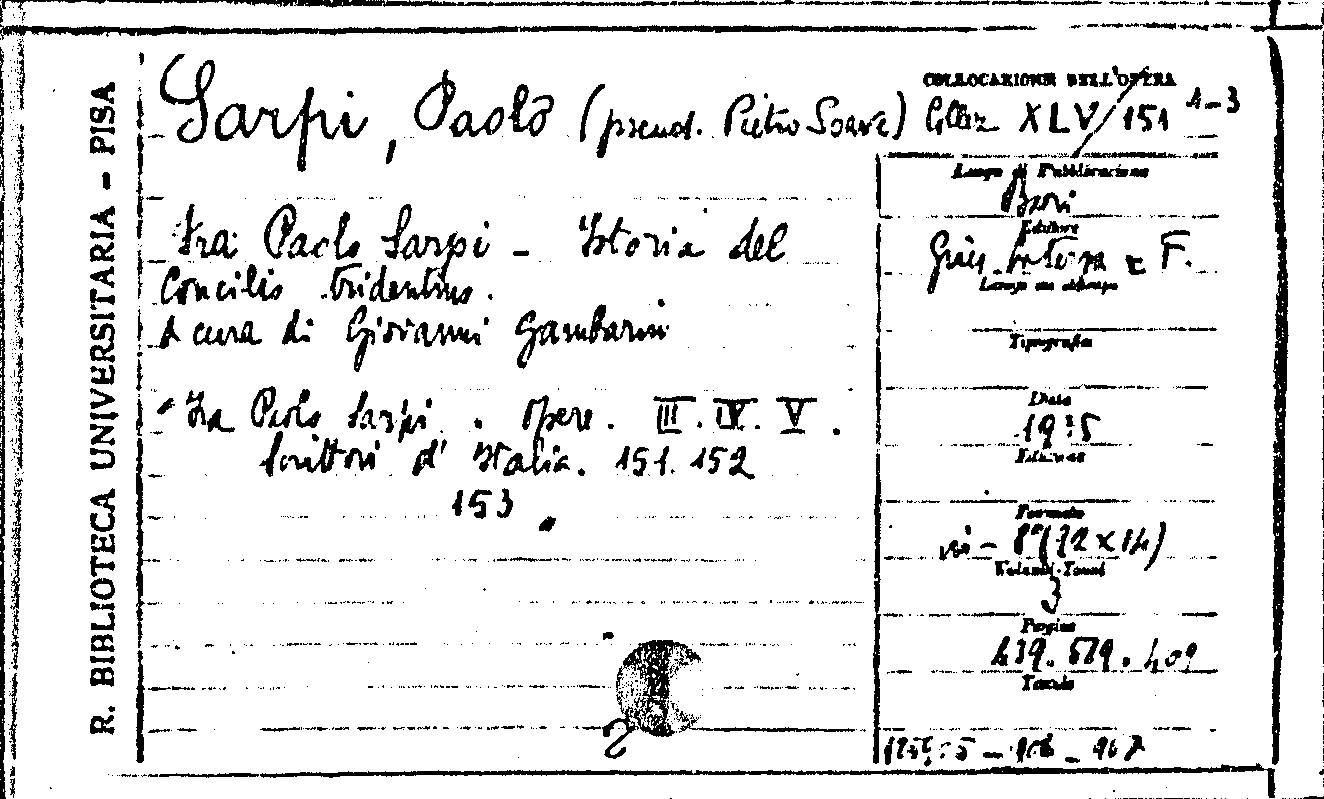 R. BIBLIOTECA UNIVERSITARIA - PISA
COLLOCAZIONE DELL'OPERA
Sarpi, Paolo (pseud. Pietro Soave) Collez XLV/151 1-3
Luogo di Pubblicazione
Bari
Fra Paolo Sarpi - Istoria del
Concilio tridentino.
A cura di Giovanni Gambarin
Editore
Gius. Laterza e F.
Luogo di stampa
Tipografia
Data
"Fra Paolo Sarpi. Opere. III. IV. V.
Scrittori d'Italia. 151. 152
153"
Edizione
Formato
in - 8°
Volumi-Tomi
3
Pagine
Tavole
2